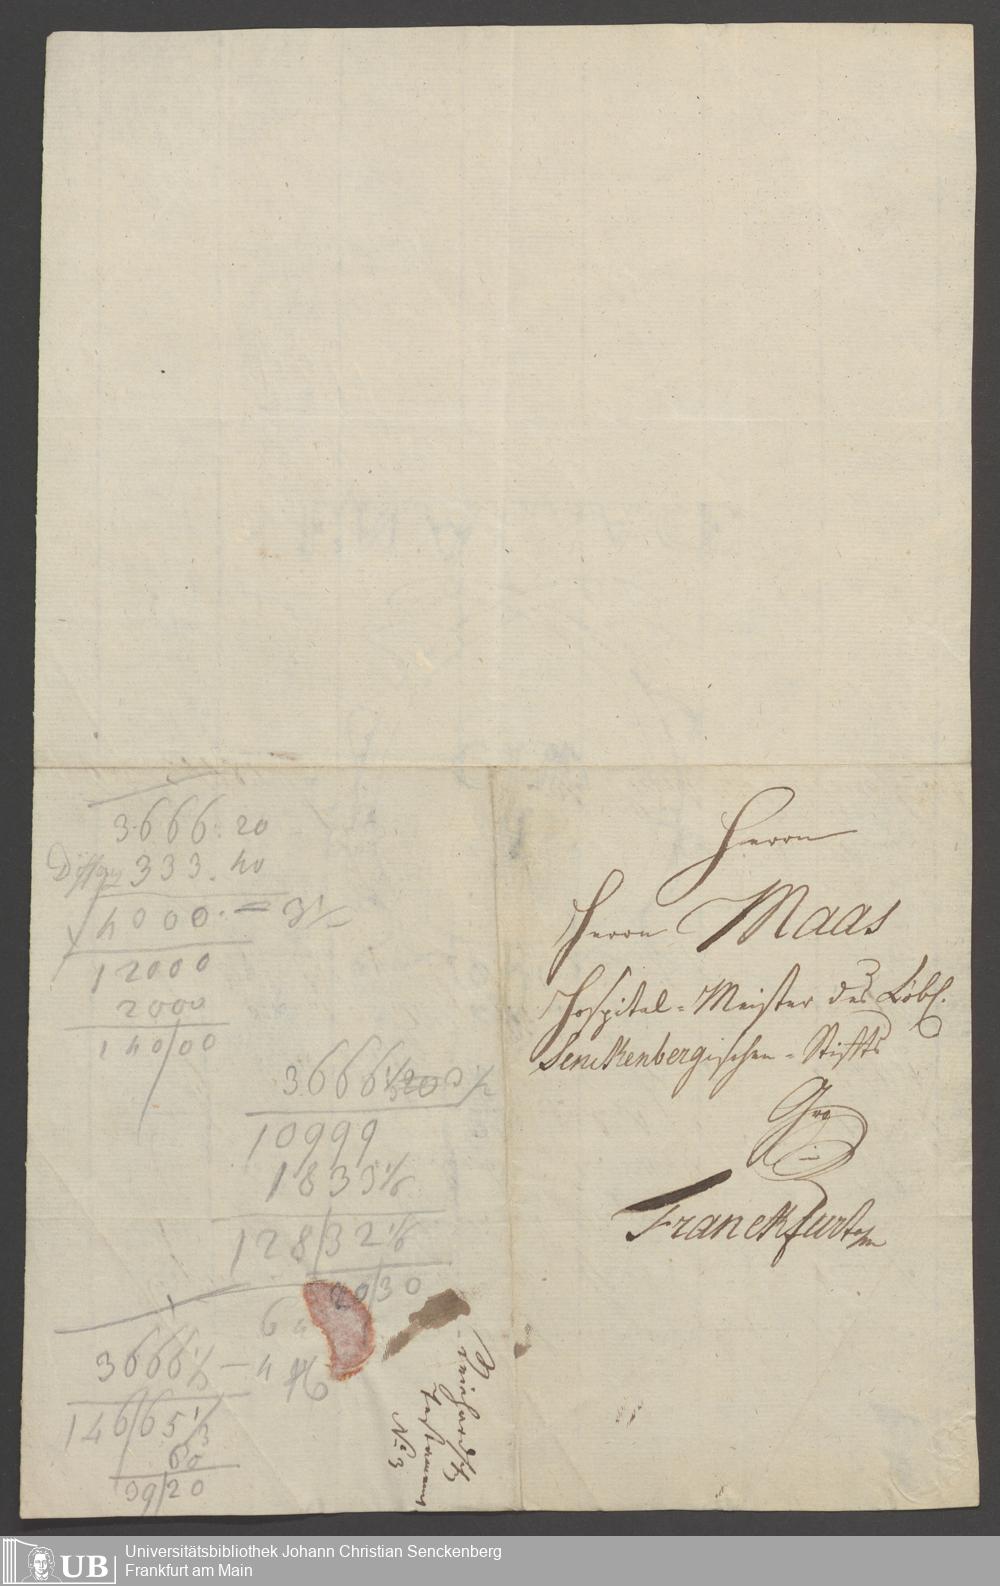 Herrn
Herrn Maas
Hospital-Meister des Löbl.
Senckenbergischen-Stiffts
Franckfurt a/m
3666. 20
333. 40
4000. =
12000
2000
140/00
3666
10999
1833
128/32
20/30
3666
146/65
60
39/20
Testament
No 3
UB
Universitätsbibliothek Johann Christian Senckenberg
Frankfurt am Main